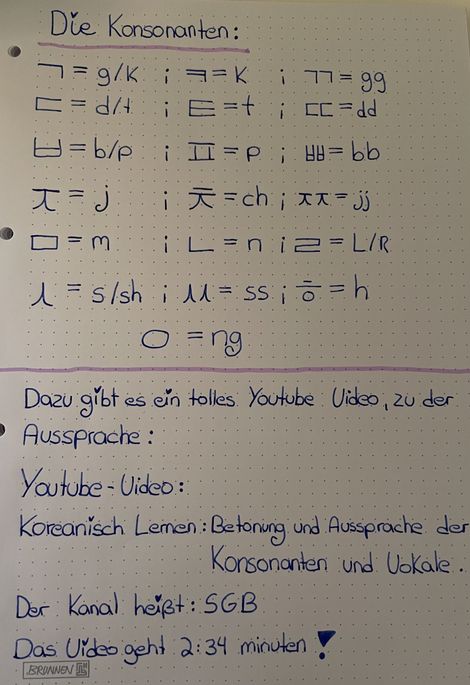 Die Konsonanten:
ㄱ = g/k ; ㅋ = k ; ㄲ = gg
ㄷ = d/t ; ㅌ = t ; ㄸ = dd
ㅂ = b/p ; ㅍ = p ; ㅃ = bb
ㅈ = j ; ㅊ = ch ; ㅉ = jj
ㅁ = m ; ㄴ = n ; ㄹ = L/R
ㅅ = s/sh ; ㅆ = ss ; ㅎ = h
ㅇ = ng
Dazu gibt es ein tolles Youtube Video, zu der
Aussprache:
Youtube-Video:
Koreanisch Lernen: Betonung und Aussprache der
Konsonanten und Vokale.
Der Kanal heißt: SGB
Das Video geht 2:34 minuten!
BRUNNEN